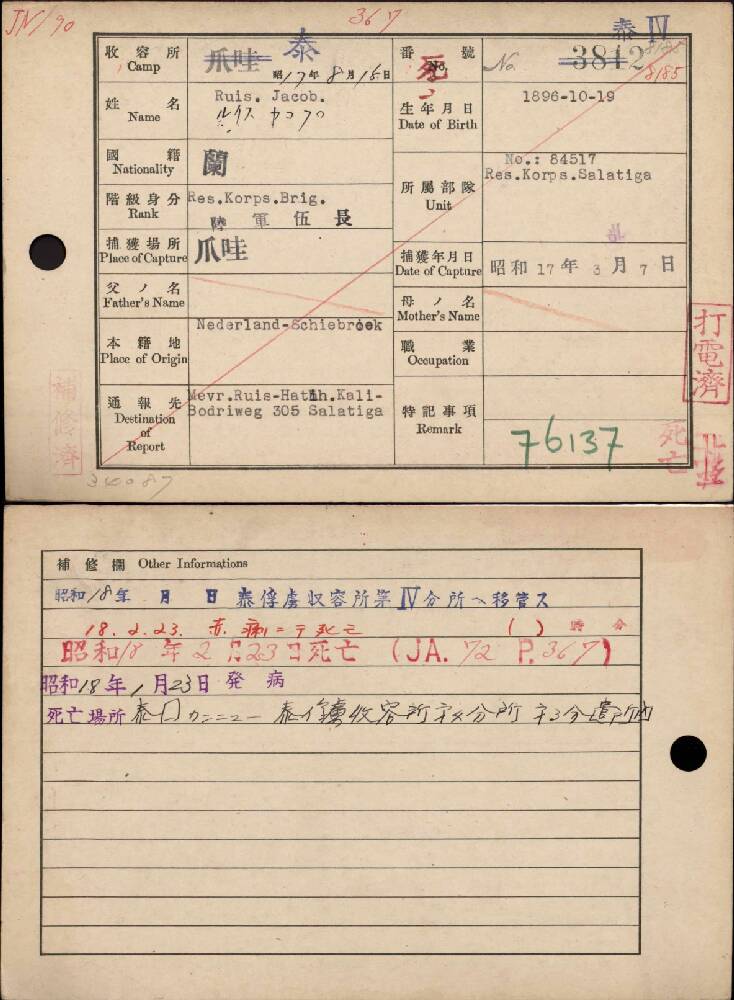 JN/90
367
泰 IV
収容所 Camp 爪哇 泰
昭17年8月15日
番號 No. 死亡 No. 3842
8185
姓名 Name Ruis. Jacob.
ルイス ヤコブ
生年月日 Date of Birth 1896-10-19
國籍 Nationality 蘭
所屬部隊 Unit No.: 84517
Res.Korps.Salatiga
階級身分 Rank Res.Korps.Brig.
陸軍伍長
捕獲場所 Place of Capture 爪哇
捕獲年月日 Date of Capture 昭和17年3月7日
父ノ名 Father's Name
母ノ名 Mother's Name
本籍地 Place of Origin Nederland-Schiebroek
職業 Occupation
通報先 Destination of Report Mevr.Ruis-Hathh.Kali-
Bodriweg 305 Salatiga
特記事項 Remark 76137
打電濟
補修濟
死亡
34087
補修欄 Other Informations
昭和18年 月 日 泰俘虜収容所第IV分所ヘ移管ス
18.2.23. 赤痢ニテ死亡 ( ) 時 分
昭和18年2月23日死亡 (JA. 72 P. 367)
昭和18年1月23日発病
死亡場所 泰国カンニュー 泰俘虜収容所